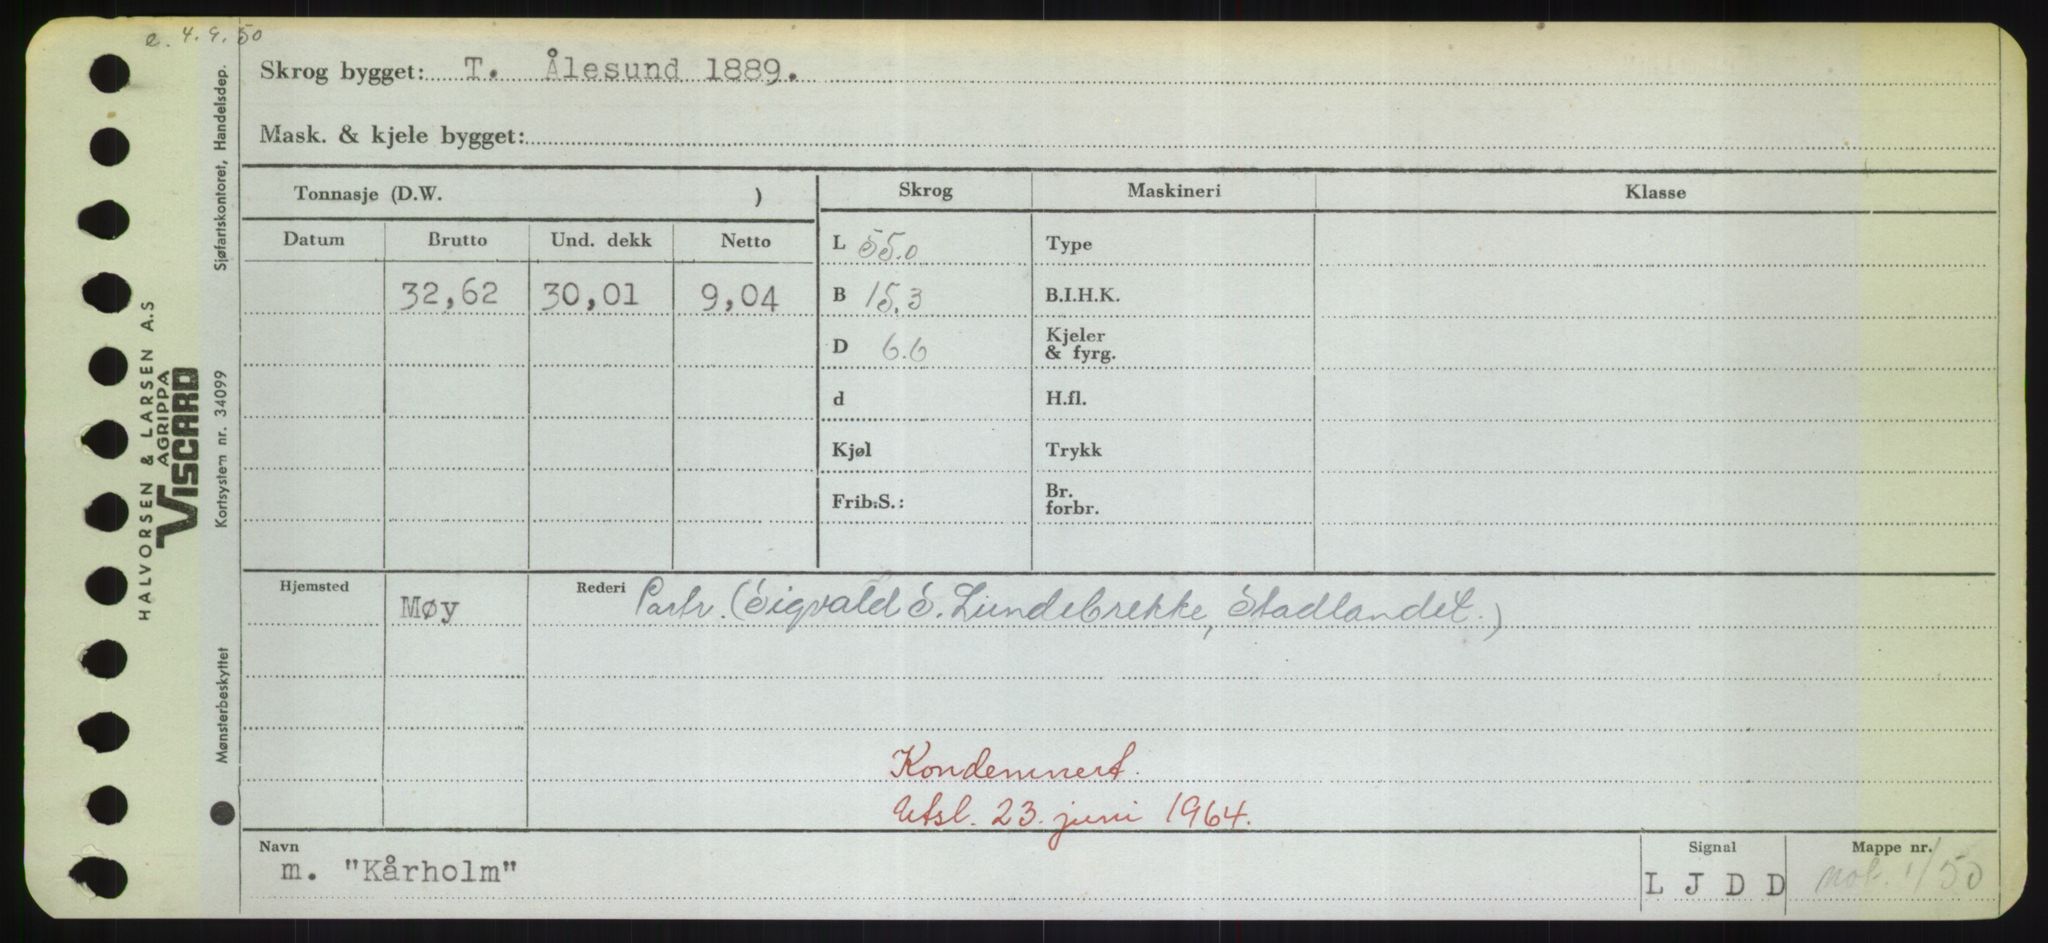 e. 4.9.50
Skrog bygget: T. Ålesund 1889.
Mask. & kjele bygget:
Tonnasje (D.W. )
Skrog
Maskineri
Klasse
Datum
Brutto
Und. dekk
Netto
L 55.0
Type
32,62
30,01
9,04
B 15.3
B.I.H.K.
D 6.6
Kjeler
& fyrg.
d
H.fl.
Kjøl
Trykk
Frib.S.:
Br.
forbr.
Hjemsted
Møy
Rederi Partr. (Sigvald S. Lundebrekke, Stadlandet.)
Kondemnert.
Utsl. 23. juni 1964.
Navn
m. "Kårholm"
Signal
L J D D
Mappe nr.
not. 1/50
HALVORSEN & LARSEN A.S
AGRIPPA
VISCARD
Mønsterbeskyttet
Kortsystem nr. 34099
Sjøfartskontoret, Handelsdep.